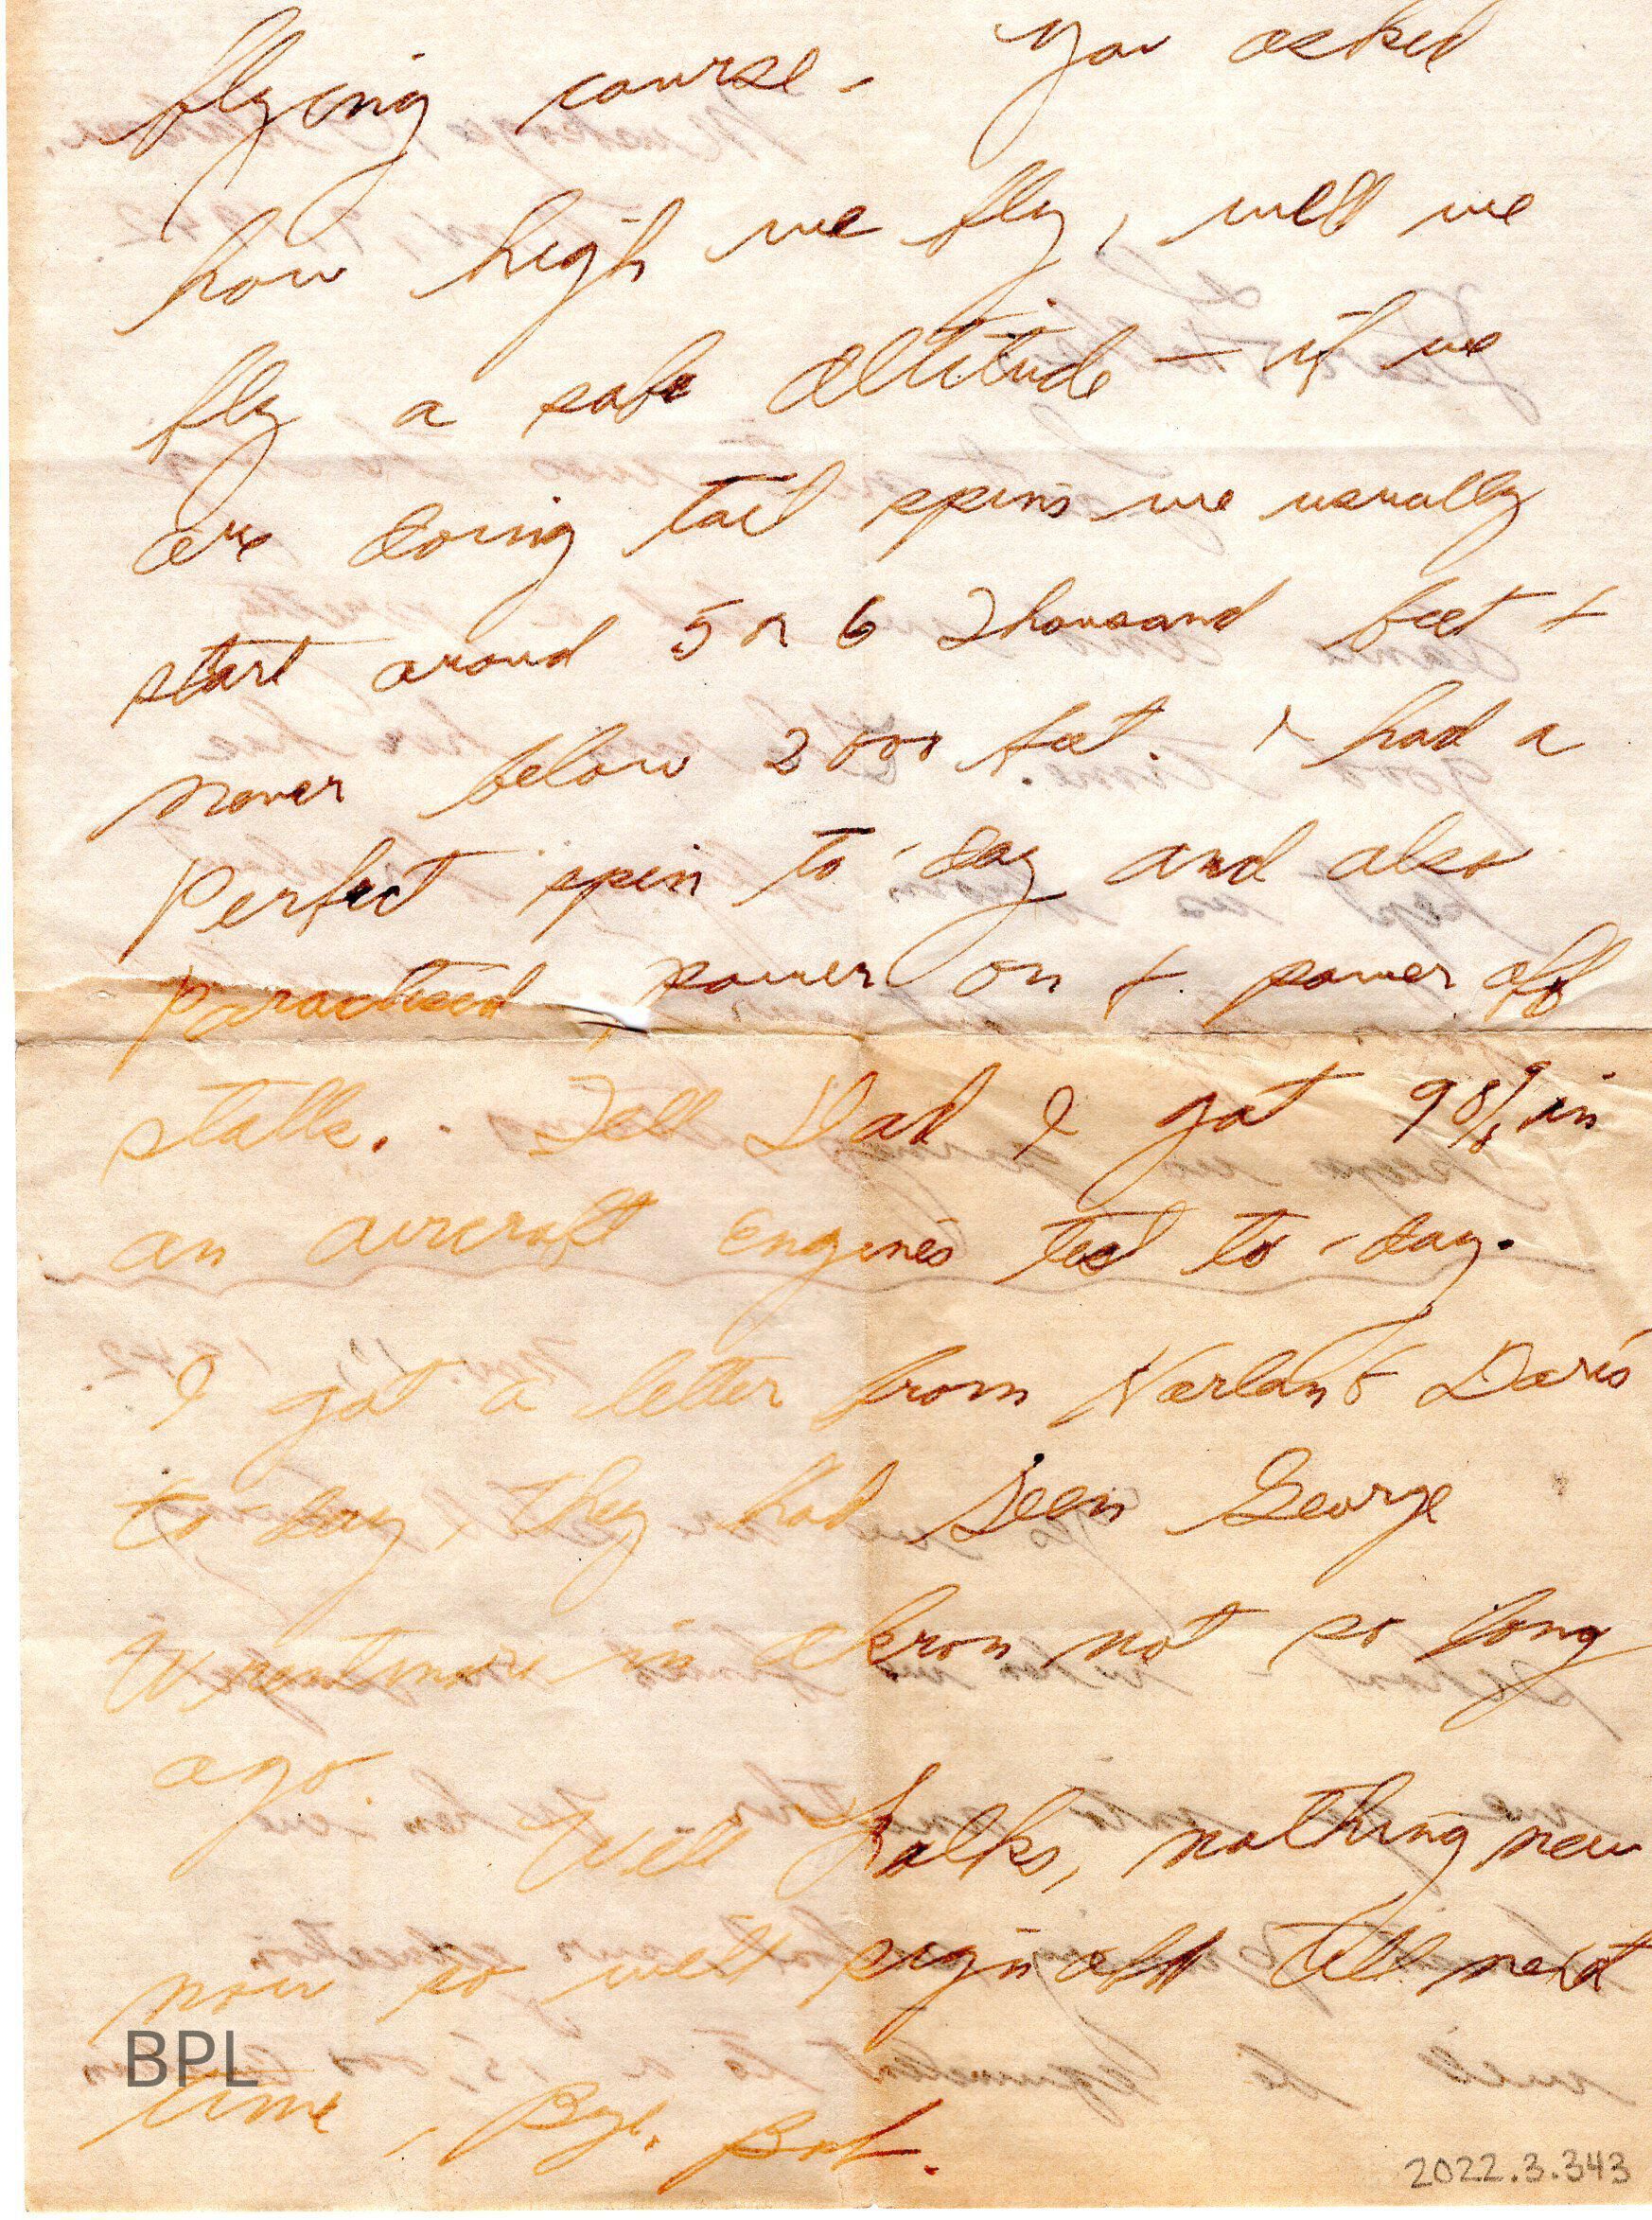 flying course. You asked
how high we fly, well we
fly a safe altitude – if we
are doing tail spins we usually
start around 5 or 6 Thousand feet +
never below 2000 feet. I had a
Perfect spin to-day and also
Practised power on + power off
stalls. Tell Dad I got 98% in
an aircraft Engines test to-day.
I got a letter from + Doris
to-day, they had seen George
in Akron not so long
ago.
Well Folks, nothing new
now so will sign off till next
time, Bye. Bob.
BPL
2022.3.343